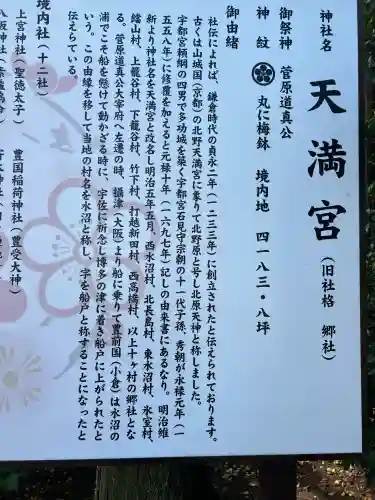 神社名 天満宮（旧社格 郷社）
御祭神 菅原道真公
神紋 丸に梅鉢 境内地 四一八三・八坪
御由緒
社伝によれば、鎌倉時代の貞永二年（一二三三年）に創立されたと伝えられております。
古くは山城国（京都）の北野天満宮に准りて北野原と号し北原天神と称しました。
宇都宮頼綱の四男で多功城を築く宇都宮石見守宗朝の十一代子孫、秀朝が永禄元年（一
五五八年）に修覆を加えると元禄十年（一六九七年）記しの由来書にあるなり。明治維
新より神社名を天満宮と改名し明治五年五月、西水沼村、北長島村、東水沼村、氷室村、
鐺山村、上籠谷村、下籠谷村、竹下村、打越新田村、西高橋村、以上十ヶ村の郷社とな
る。菅原道真公大宰府へ左遷の時、攝津（大阪）より船に乗りて豊前国（小倉）は水沼の
浦でこそ船を懸けて動かざる時に、宇佐に祈念し博多の津に着き船戸に上がられたと
いう。この由縁を移して当地の村名を水沼と称し、字を船戸と称することになったと
伝えらている。
境内社（十二社）
上宮神社（聖徳太子） 豊国稲荷神社（豊受大神）